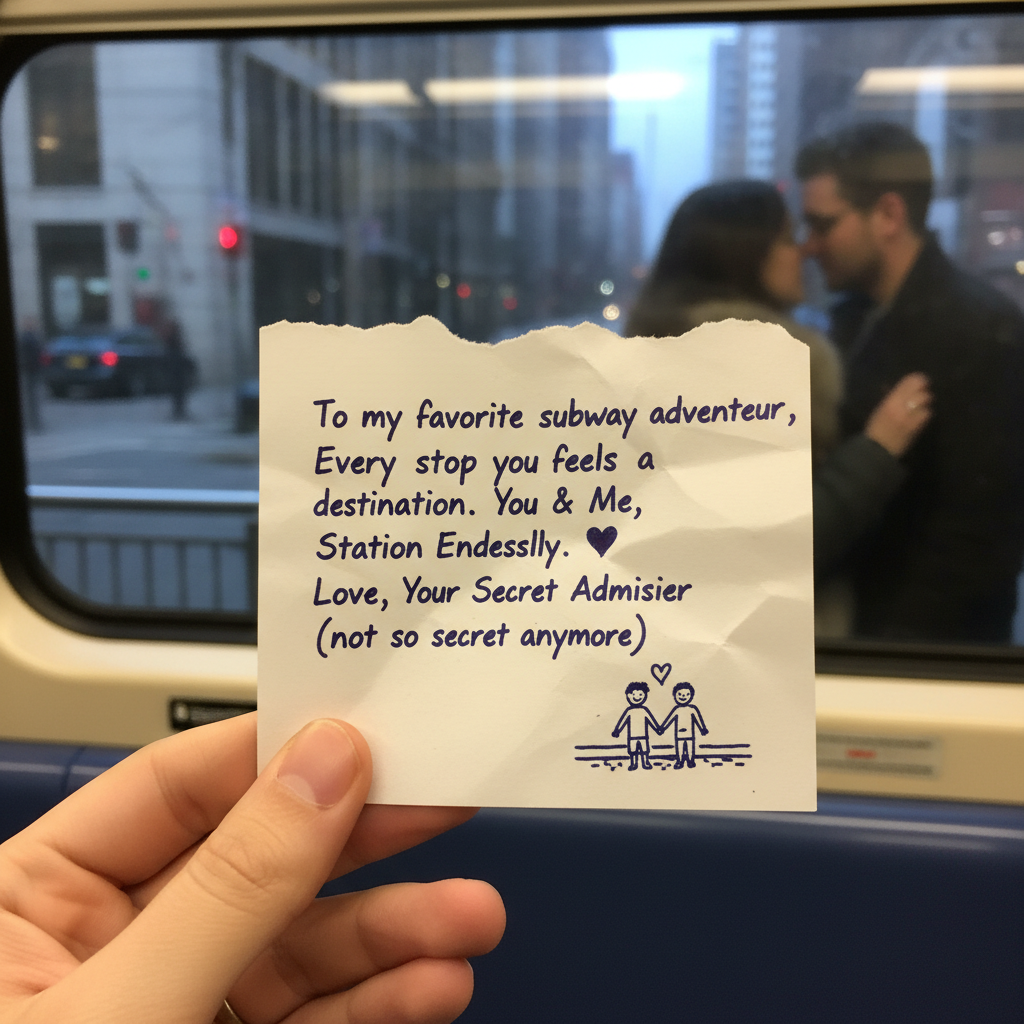 To my favorite subway adventeur,
Every stop you feels a
destination. You & Me,
Station Endesslly. ♥
Love, Your Secret Admisier
(not so secret anymore)